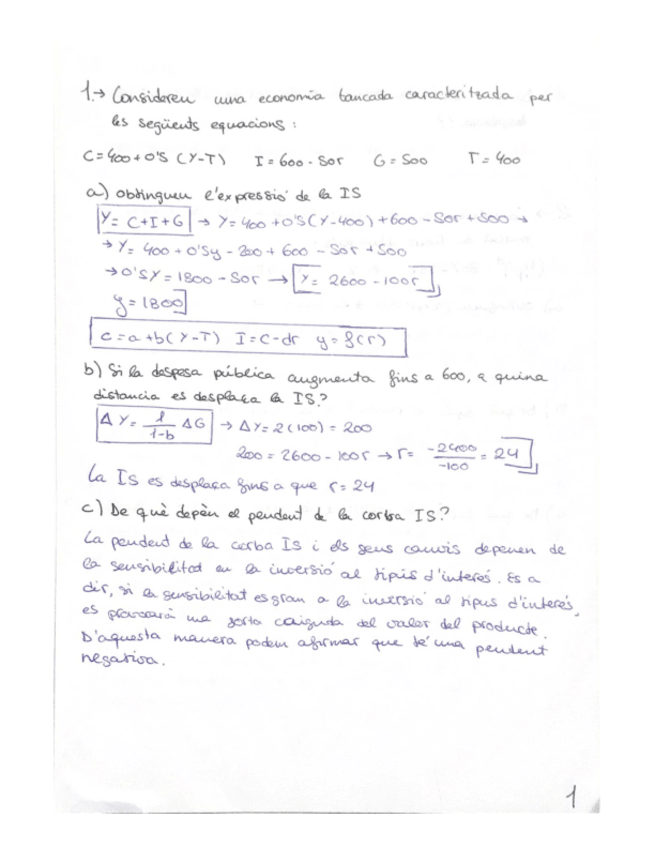 1.→ Considereu una economia tancada caracteritzada per
les següents equacions:
C=400+0'5 (Y-T) I=600-50r G=500 T=400
a) obtingueu l'expressió de la IS
Y= C+I+G → Y=400+0'5(Y-400)+600-50r+500 →
→ Y= 400+0'5y-200+600-50r+500
→ 0'5Y=1800-50r → Y= 2600-100r
y=1800
C=a+b(Y-T) I=C-dr y=f(r)
b) Si la despesa pública augmenta fins a 600, a quina
distancia es desplaça la IS?
ΔY= 1/1-b ΔG → ΔY=2(100)=200
200=2600-100r → r= -2400/-100 = 24
La IS es desplaça fins a que r=24
c) De què depèn el pendent de la corba IS?
La pendent de la corba IS i els seus canvis depenen de
la sensibilitat en la inversió al tipus d'interés. És a
dir, si la sensibilitat es gran a la inversió al tipus d'interés,
es provocarà una forta caiguda del valor del producte.
D'aquesta manera podem afirmar que té una pendent
negativa.
1